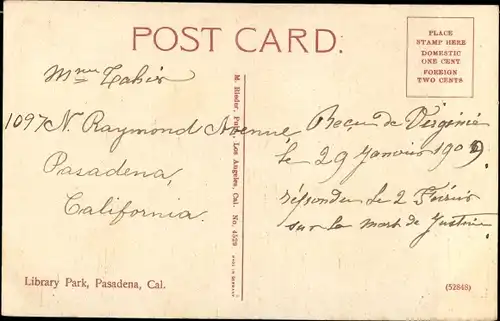 POST CARD.
PLACE
STAMP HERE
DOMESTIC
ONE CENT
FOREIGN
TWO CENTS
Mme
1097 N. Raymond Avenue
Pasadena,
California.
M. Rieder, Publ., Los Angeles, Cal. No. 4529
MADE IN GERMANY
Reçu de Virginie
le 29 Janvier 1909
répondu le 2 Février
sur la mort de Justine
Library Park, Pasadena, Cal.
(52848)